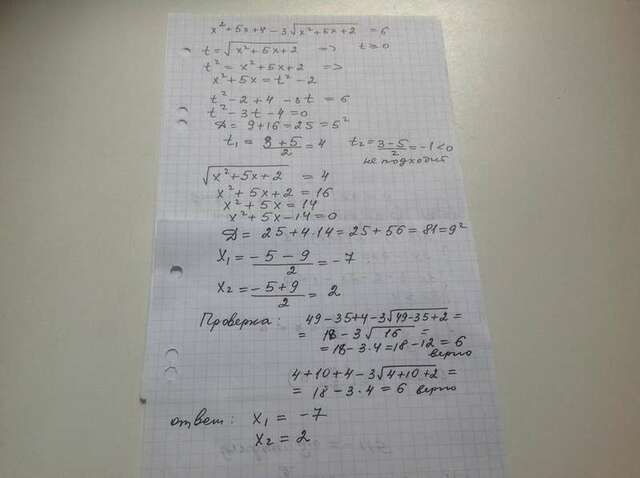 x² + 5x + 4 - 3√(x² + 5x + 2) = 6
t = √(x² + 5x + 2) => t ≥ 0
t² = x² + 5x + 2 =>
x² + 5x = t² - 2
t² - 2 + 4 - 3t = 6
t² - 3t - 4 = 0
D = 9 + 16 = 25 = 5²
t₁ = (3 + 5)/2 = 4 t₂ = (3 - 5)/2 = -1 < 0
не подходит
√(x² + 5x + 2) = 4
x² + 5x + 2 = 16
x² + 5x = 14
x² + 5x - 14 = 0
D = 25 + 4·14 = 25 + 56 = 81 = 9²
x₁ = (-5 - 9)/2 = -7
x₂ = (-5 + 9)/2 = 2
Проверка: 49 - 35 + 4 - 3√(49 - 35 + 2) =
= 18 - 3√16 =
= 18 - 3·4 = 18 - 12 = 6
верно
4 + 10 + 4 - 3√(4 + 10 + 2) =
= 18 - 3·4 = 6 верно
ответ: x₁ = -7
x₂ = 2